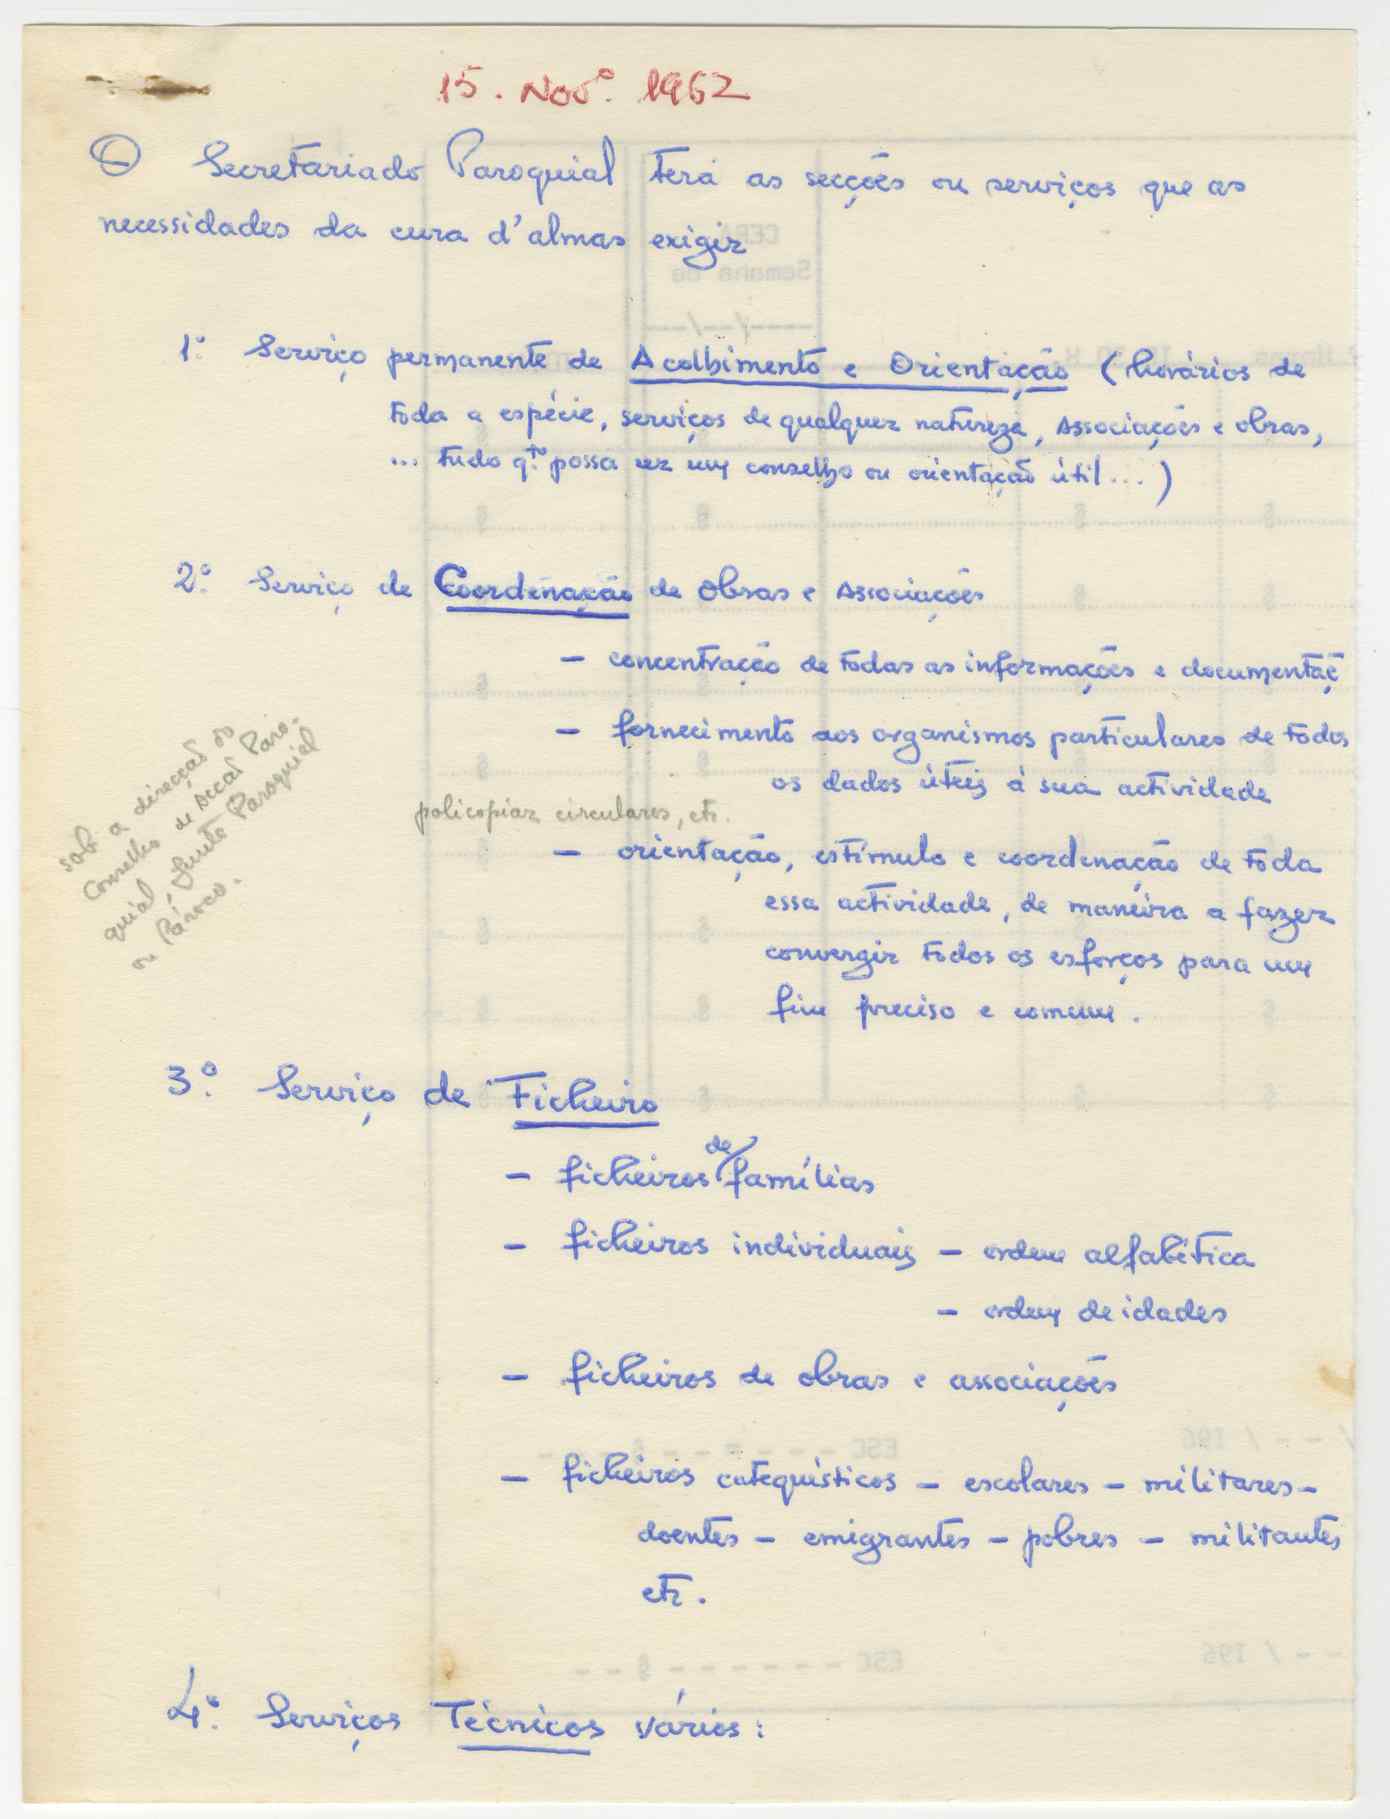 15. Novº. 1962
O Secretariado Paroquial terá as secções ou serviços que as
necessidades da cura d'almas exigir
1º. Serviço permanente de Acolhimento e Orientação (horários de
toda a espécie, serviços de qualquer natureza, Associações e obras,
... tudo q.to possa ser um conselho ou orientação útil...)
2º. Serviço de Coordenação de Obras e Associações
- concentração de todas as informações e documentaç
- fornecimento aos organismos particulares de todos
os dados úteis á sua actividade
policopiar circulares, etc.
- orientação, estímulo e coordenação de toda
essa actividade, de maneira a fazer
convergir todos os esforços para um
fim preciso e comum.
sob a direcção do
Conselho de Accão Paro-
quial, Junta Paroquial
ou Pároco.
3º. Serviço de Ficheiro
- ficheiros de famílias
- ficheiros individuais - ordem alfabética
- ordem de idades
- ficheiros de obras e associações
- ficheiros catequísticos - escolares - militares -
doentes - emigrantes - pobres - militantes
etc.
4º. Serviços Técnicos vários: